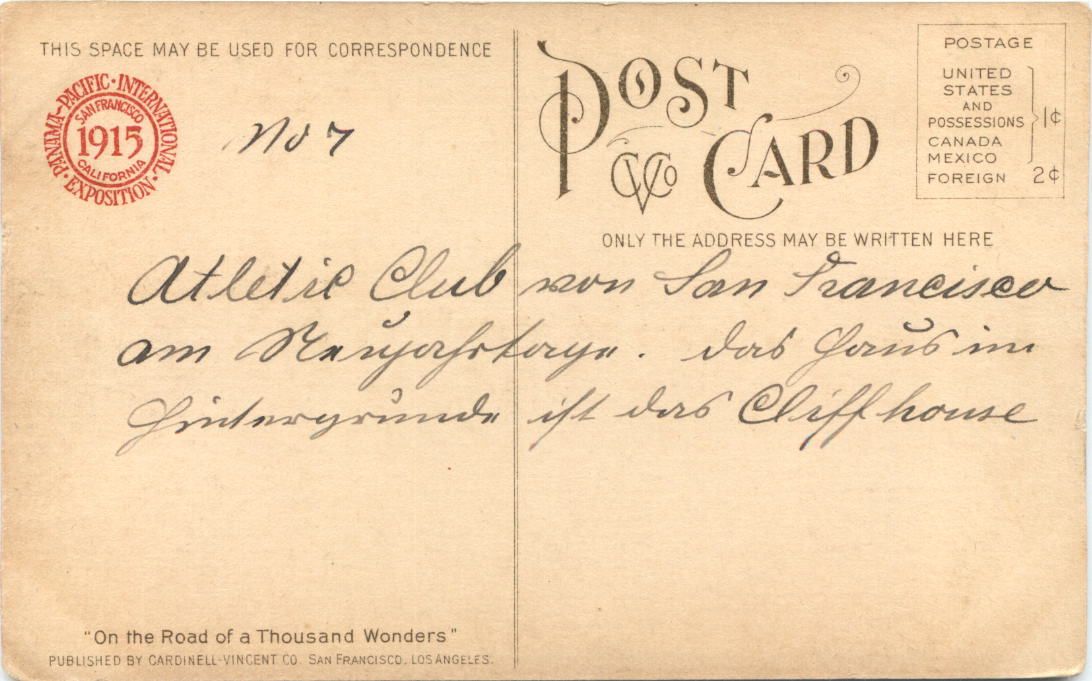 THIS SPACE MAY BE USED FOR CORRESPONDENCE
PANAMA-PACIFIC·INTERNATIONAL·EXPOSITION·
SAN FRANCISCO
1915
CALIFORNIA
No 7
POST CARD
CVCo
POSTAGE
UNITED
STATES
AND
POSSESSIONS 1¢
CANADA
MEXICO
FOREIGN 2¢
ONLY THE ADDRESS MAY BE WRITTEN HERE
Atletic Club von San Francisco
am Neujahrstage. das Haus im
Hintergrunde ist das Cliffhouse
"On the Road of a Thousand Wonders"
PUBLISHED BY CARDINELL-VINCENT CO. SAN FRANCISCO. LOS ANGELES.